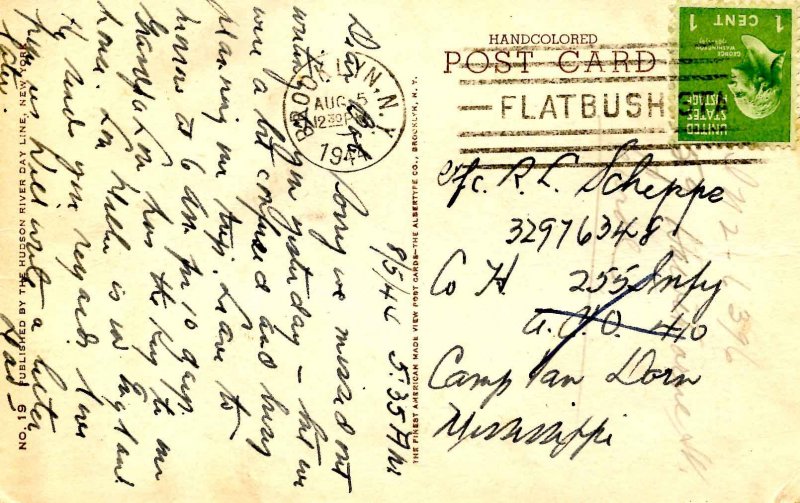 HANDCOLORED
POST CARD
BROOKLYN, N.Y.
AUG 5
12 30 P
1944
FLATBUSH STA
1 CENT 1
GEORGE
WASHINGTON
UNITED
STATES
POSTAGE
R. L. Scheppe
32976348
Co H 255 Infy
A.P.O. 410
Camp Van Dorn
Mississippi
8/5/44 5:35 PM
Sorry we missed out
writing you yesterday - but we
were a bit confused and busy
planning our trip. Leave to
morrow at 6 am for 10 days
Grandpa Lou has the key to our
home. Lou Weller is in England
He sends you regards. Love
from us Will write a letter
later. Dad -
THE FINEST AMERICAN MADE VIEW POST CARDS—THE ALBERTYPE CO., BROOKLYN, N. Y.
NO. 19 PUBLISHED BY THE HUDSON RIVER DAY LINE, NEW YORK